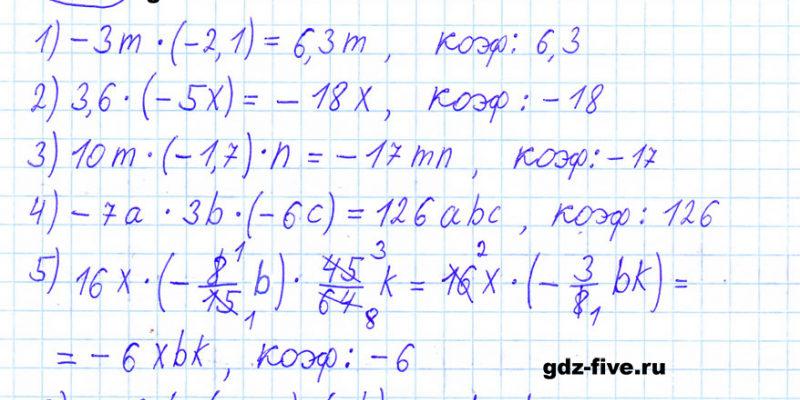 1) -3m · (-2,1) = 6,3m , коэф: 6,3
2) 3,6 · (-5x) = -18x , коэф: -18
3) 10m · (-1,7) · n = -17mn , коэф: -17
4) -7a · 3b · (-6c) = 126abc , коэф: 126
5) 16x · (- 8¹/15₁ b) · 45³/64₈ k = 16²x · (- 3/8₁ bk) =
= -6xbk , коэф: -6
gdz-five.ru